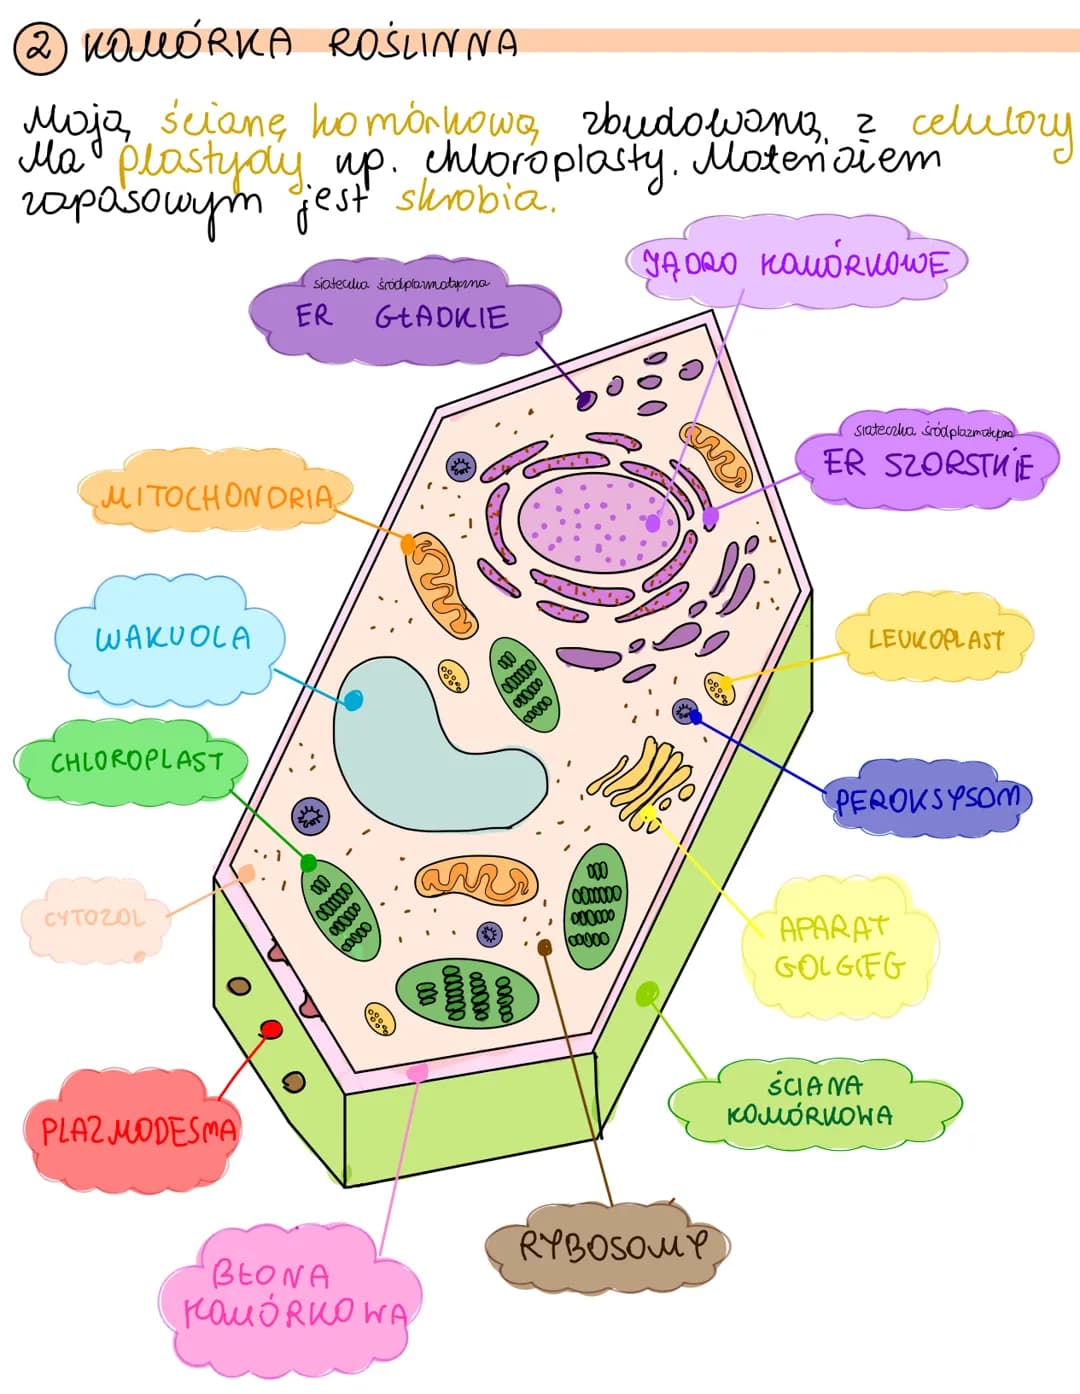 2 KOMÓRKA ROŚLINNA
Mają ścianę komórkową zbudowaną z celulozy
Ma plastydy np. chloroplasty. Materiałem
zapasowym jest skrobia.
JĄDRO KOMÓRKOWE
siateczka śródplazmatyczna
ER GŁADKIE
siateczka śródplazmatyczna
ER SZORSTKIE
MITOCHONDRIA
WAKUOLA
LEUKOPLAST
CHLOROPLAST
PEROKSYSOM
CYTOZOL
APARAT
GOLGIEG
ŚCIANA
KOMÓRKOWA
PLAZMODESMA
RYBOSOMY
BŁONA
KOMÓRKOWA